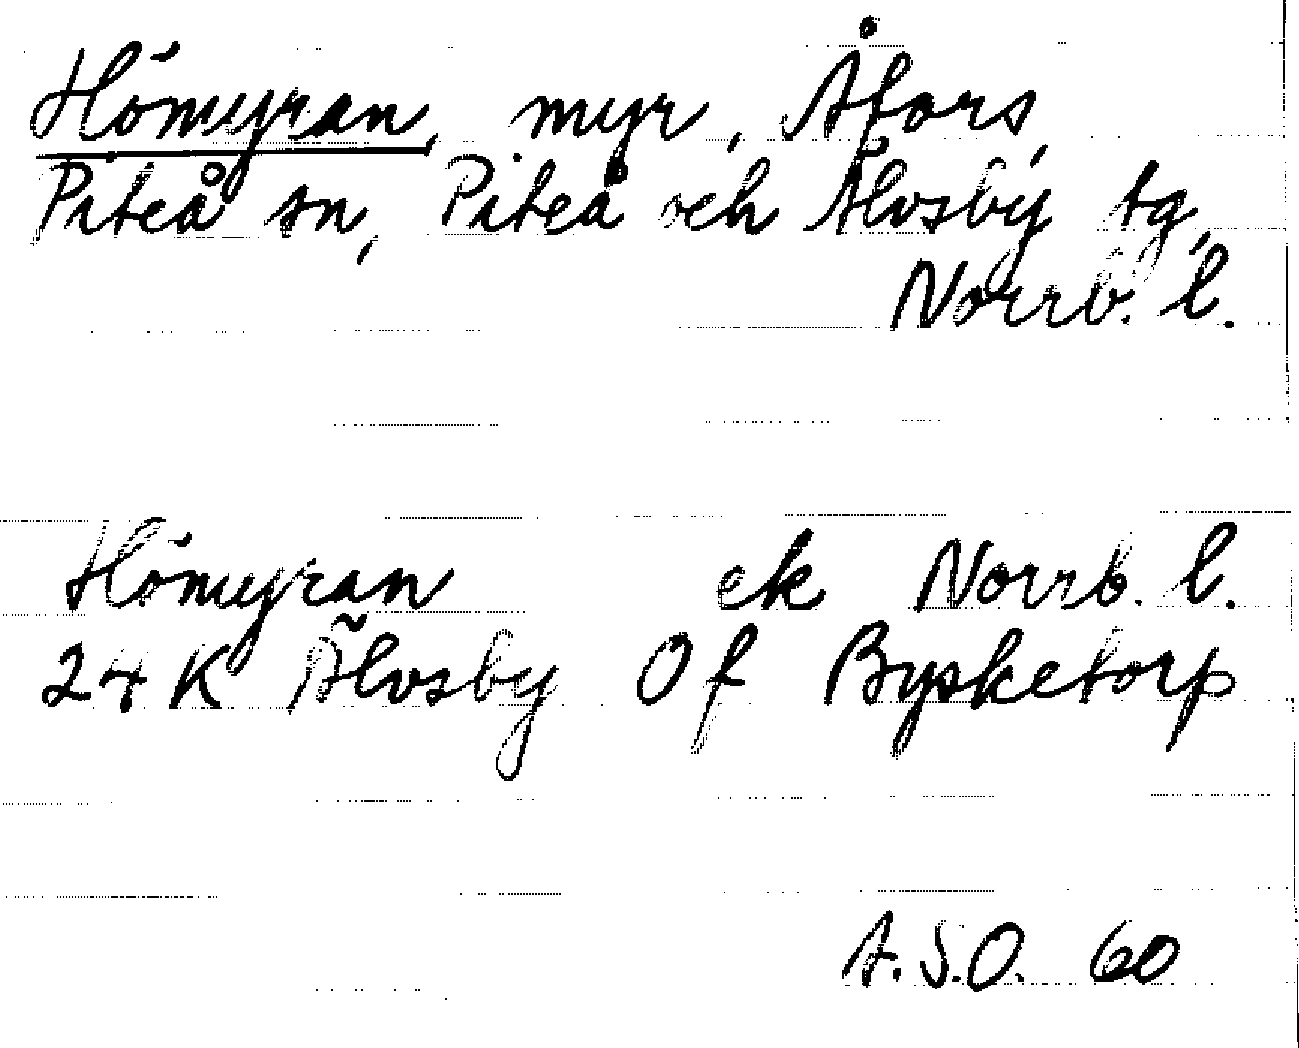 Hömyran, myr, Åfors,
Piteå sn, Piteå och Älvsby tg,
Norrb. l.
Hömyran ek Norrb. l.
24 K Älvsby 0f Bysketorp
A.S.O. 60